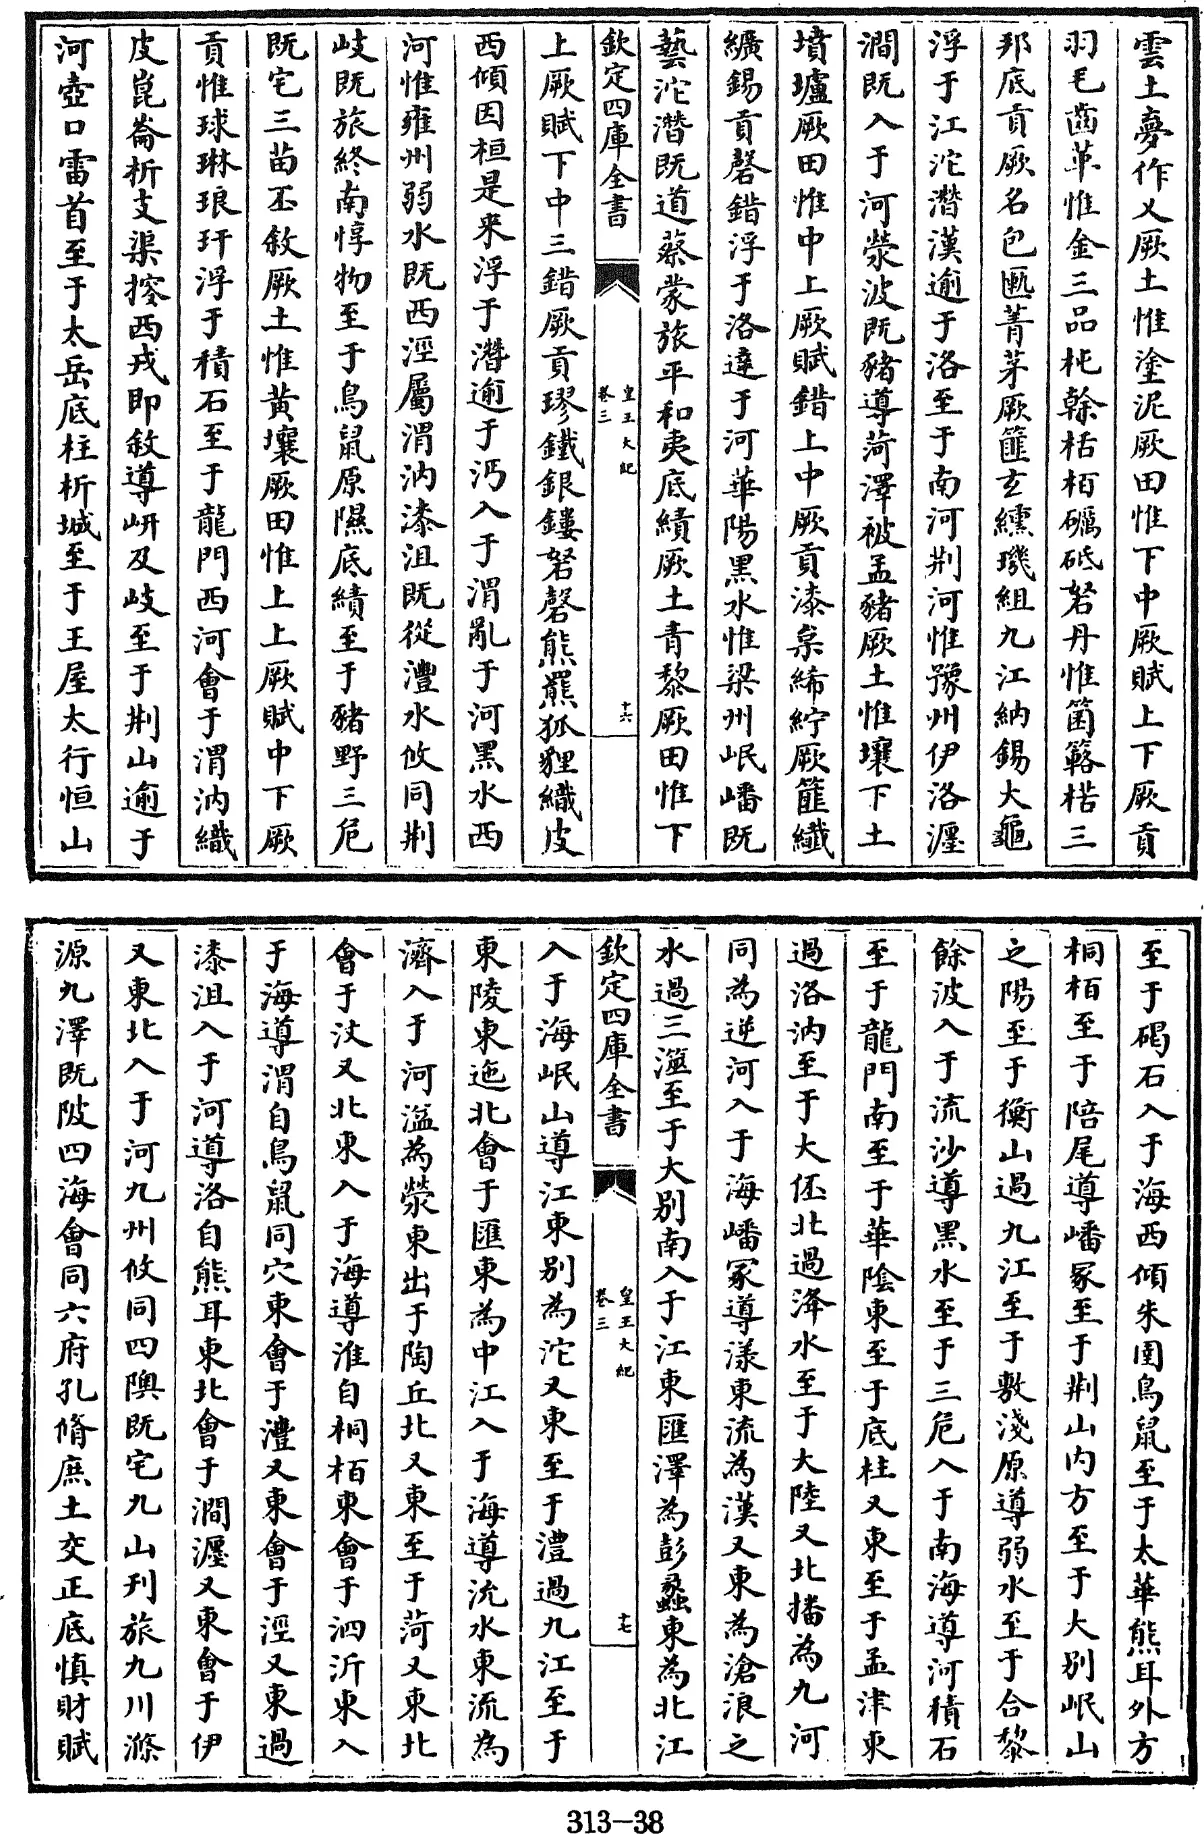 雲土夢作乂厥土惟塗泥厥田惟下中厥賦上下厥貢
羽毛齒革惟金三品杶榦栝栢礪砥砮丹惟箘簵楛三
邦底貢厥名包匭菁茅厥篚玄纁璣組九江納錫大龜
浮于江沱潛漢逾于洛至于南河荆河惟豫州伊洛瀍
澗既入于河滎波既豬導菏澤被孟豬厥土惟壤下土
墳壚厥田惟中上厥賦錯上中厥貢漆枲絺紵厥篚纎
纊錫貢磬錯浮于洛達于河華陽黑水惟梁州岷嶓既
藝沱潛既道蔡蒙旅平和夷底績厥土青黎厥田惟下
欽定四庫全書
皇王大紀
卷三
十六
上厥賦下中三錯厥貢璆鐵銀鏤砮磬熊羆狐貍織皮
西傾因桓是來浮于潛逾于沔入于渭亂于河黑水西
河惟雍州弱水既西涇屬渭汭漆沮既從灃水攸同荆
岐既旅終南惇物至于鳥鼠原隰底績至于豬野三危
既宅三苗丕敘厥土惟黄壤厥田惟上上厥賦中下厥
貢惟球琳琅玕浮于積石至于龍門西河會于渭汭織
皮崑崙析支渠搜西戎即敘導岍及岐至于荆山逾于
河壺口雷首至于太岳底柱析城至于王屋太行恒山
至于碣石入于海西傾朱圉鳥鼠至于太華熊耳外方
桐栢至于陪尾導嶓冢至于荆山内方至于大别岷山
之陽至于衡山過九江至于敷淺原導弱水至于合黎
餘波入于流沙導黑水至于三危入于南海導河積石
至于龍門南至于華陰東至于底柱又東至于孟津東
過洛汭至于大伾北過洚水至于大陸又北播為九河
同為逆河入于海嶓冢導漾東流為漢又東為滄浪之
水過三澨至于大别南入于江東匯澤為彭蠡東為北江
欽定四庫全書
皇王大紀
卷三
十七
入于海岷山導江東别為沱又東至于澧過九江至于
東陵東迤北會于匯東為中江入于海導沇水東流為
濟入于河溢為滎東出于陶丘北又東至于菏又東北
會于汶又北東入于海導淮自桐栢東會于泗沂東入
于海導渭自鳥鼠同穴東會于灃又東會于涇又東過
漆沮入于河導洛自熊耳東北會于澗瀍又東會于伊
又東北入于河九州攸同四隩既宅九山刋旅九川滌
源九澤既陂四海會同六府孔脩庶土交正底慎財賦
313-38